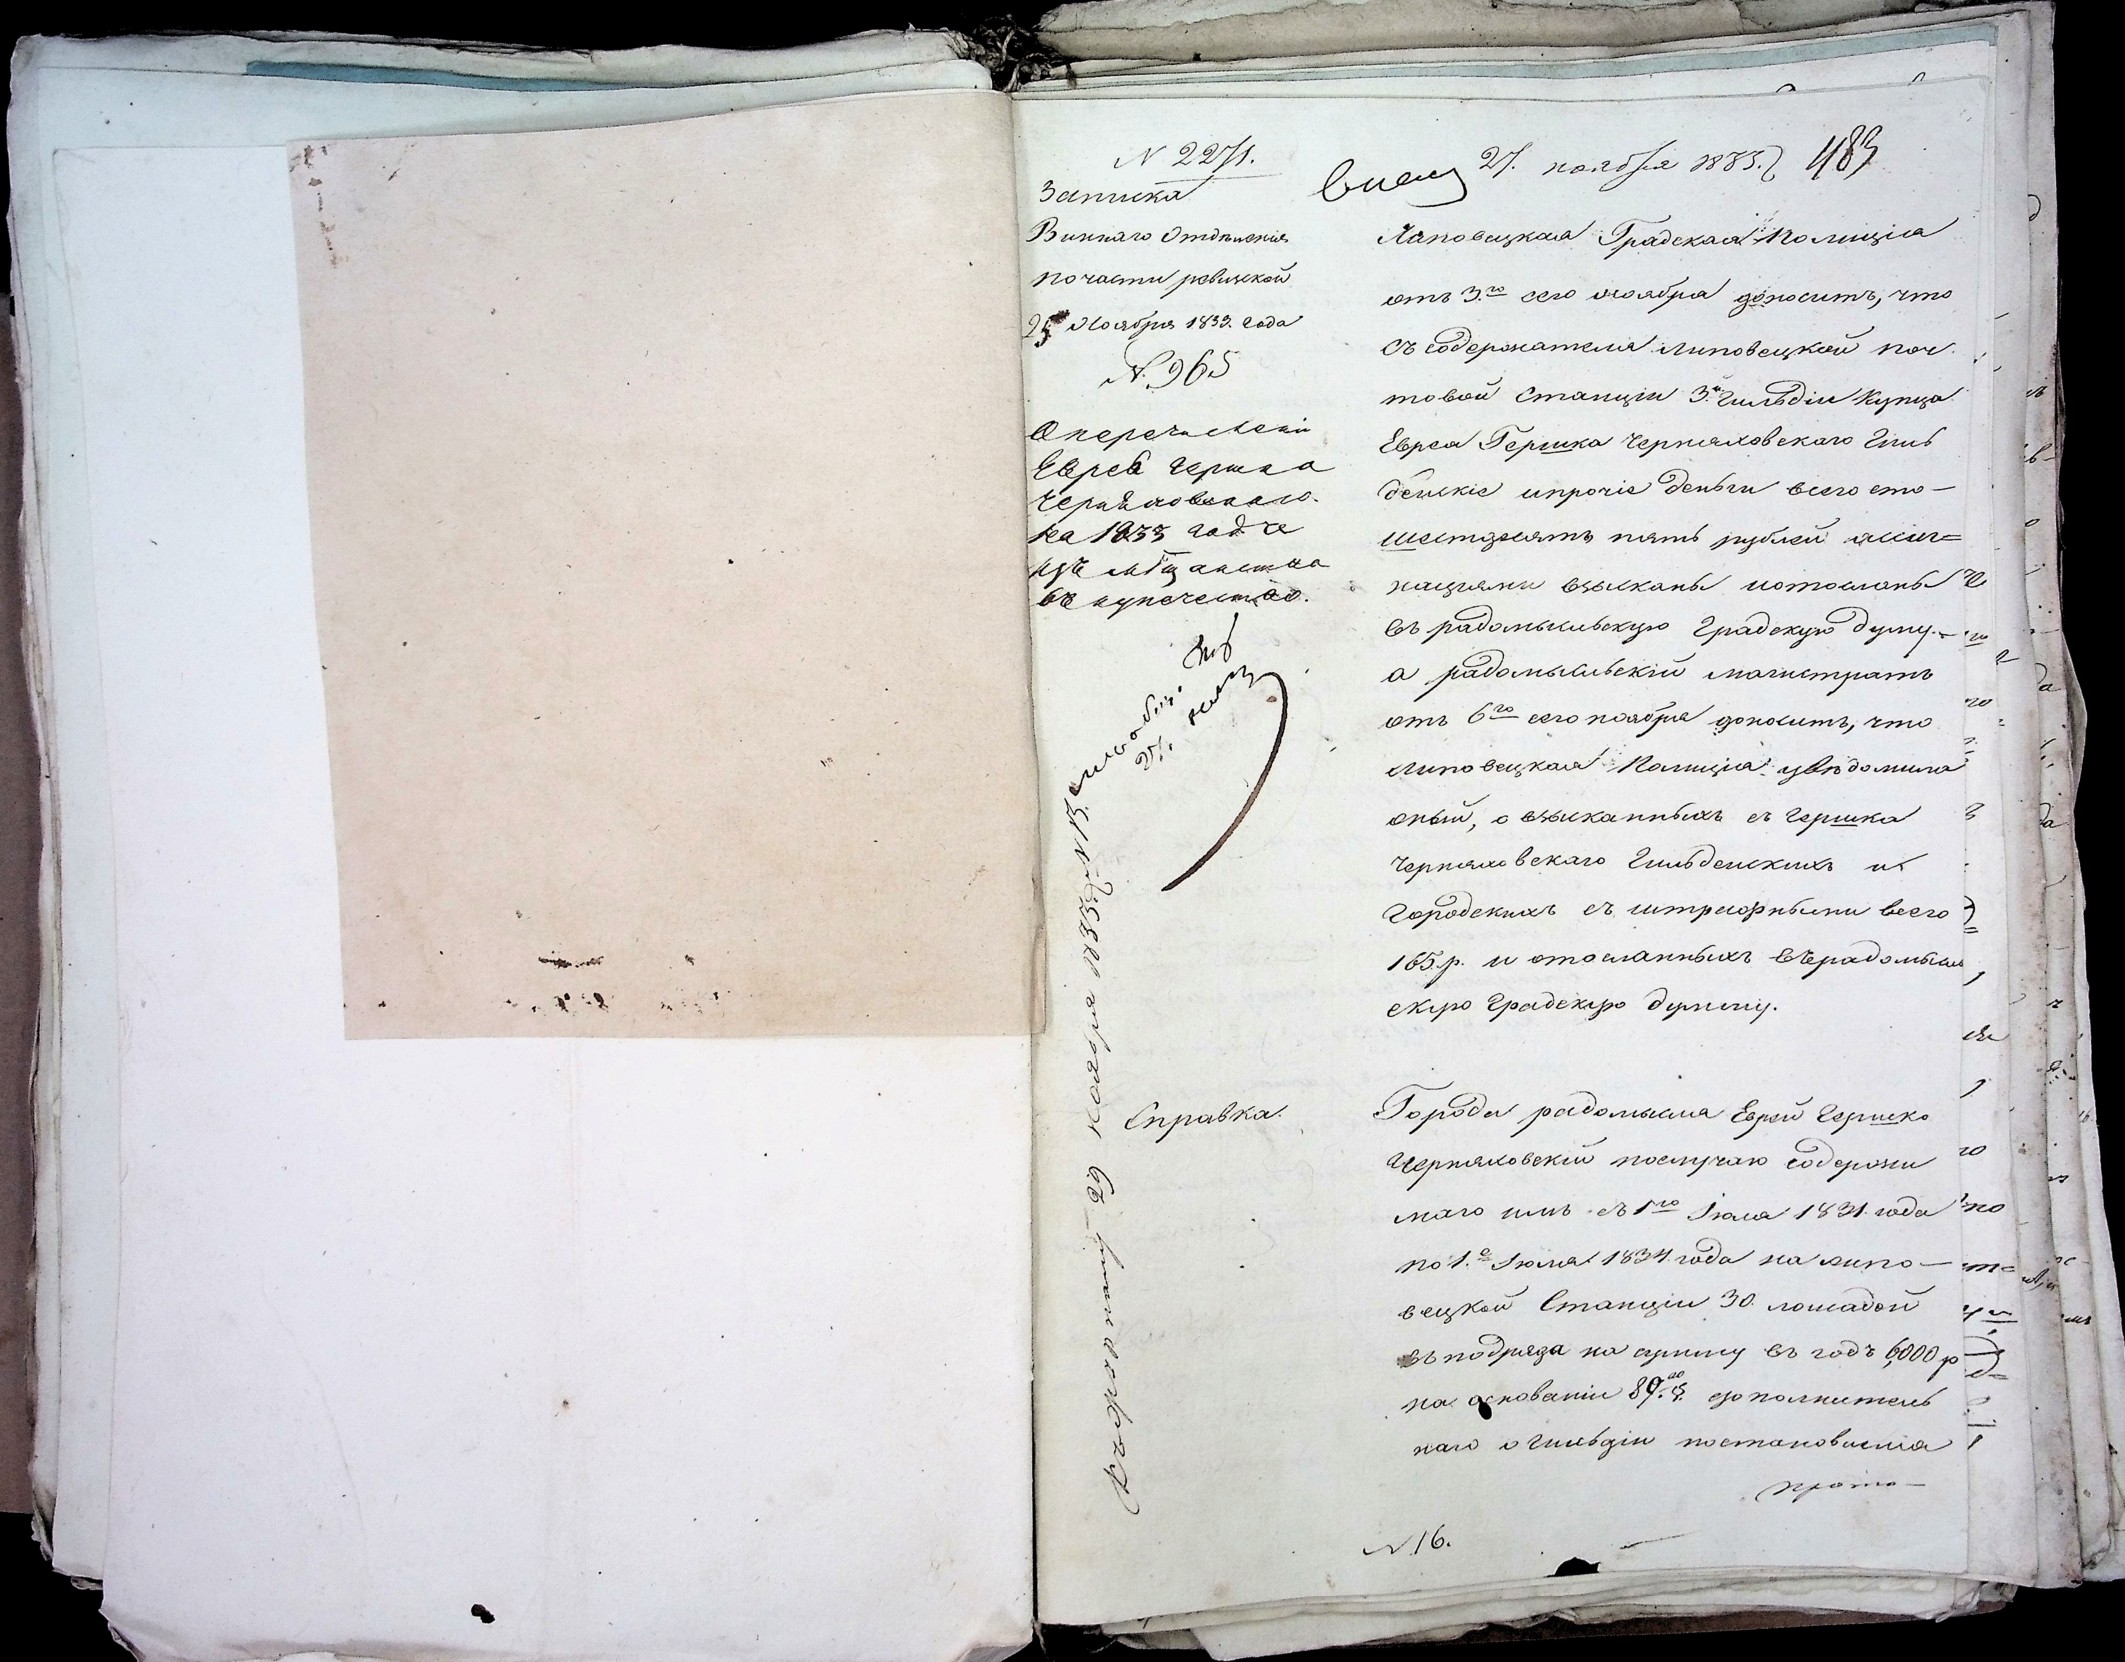 N 2271.
27. ноября 1833. 483
Записка
Виннаго Отделенія
по части ревизской
25 Ноября 1833. года
N. 965
О перечисленіи
Еврея Гершка
Черняховскаго
на 1833 годъ
изъ мѣщанства
въ купечество.
27. ноября
ноября 1833 N
Липовецкая Градская Полиція
отъ 3.го сего ноября доноситъ, что
съ содержателя липовецкой поч
товой станціи 3.й гильдіи купца
Еврея Гершка Черняховскаго гиль
дейскіе и прочіе деньги всего сто-
шестдесятъ пять рублей ассиг=
націями взысканы и отосланы
въ радомысльскую градскую думу.-
а радомысльскій магистратъ
отъ 6го сего ноября доноситъ, что
липовецкая Полиція увѣдомила
оный, о взысканныхъ съ Гершка
Черняховскаго гильдейскихъ и
городскихъ съ штрафными всего
165.р. и отосланныхъ въ радомысль
скую градскую думу.
Справка.
Города радомысля Еврей Гершко
Черняховскій по случаю содержи
маго имъ съ 1го Іюля 1831. года
по 1.е Іюля 1834 года на липо-
вецкой Станціи 30. лошадей
въ подряда на сумму въ годъ 6,000 р
на основаніи 89. § дополнитель
наго о гильдіи постановленія
прото-
N 16.